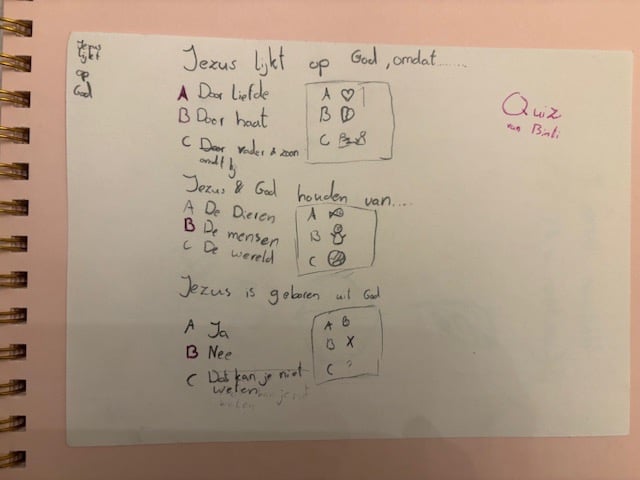 Jezus
lijkt
op
God
Jezus lijkt op God, omdat.......
A Door liefde
B Door haat
C Door vader & zoon
A
B
C
Quiz
van
Jezus & God houden van....
A De Dieren
B De mensen
C De wereld
A
B
C
Jezus is geboren uit God
A Ja
B Nee
C Dat kan je niet
weten
A B
B X
C ?